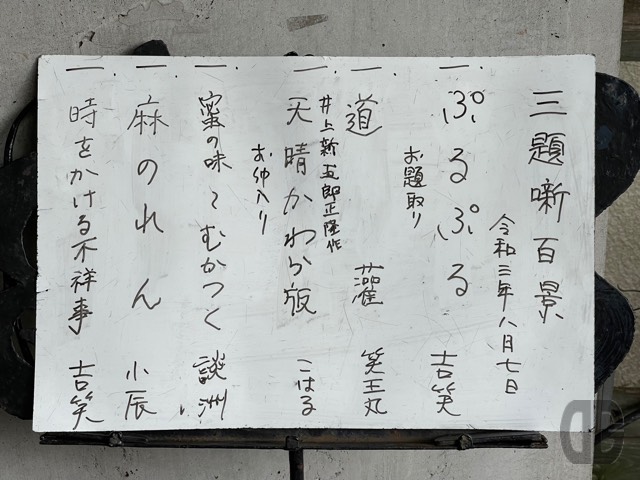 三題噺百景
令和三年八月七日
一、ぷるぷる 吉笑
お題取り
一、道灌 笑王丸
井上新五郎正隆作
一、天晴かわら版 こはる
お仲入り
一、蜜の味〜むかつく 談洲
一、麻のれん 小辰
一、時をかける不祥事 吉笑